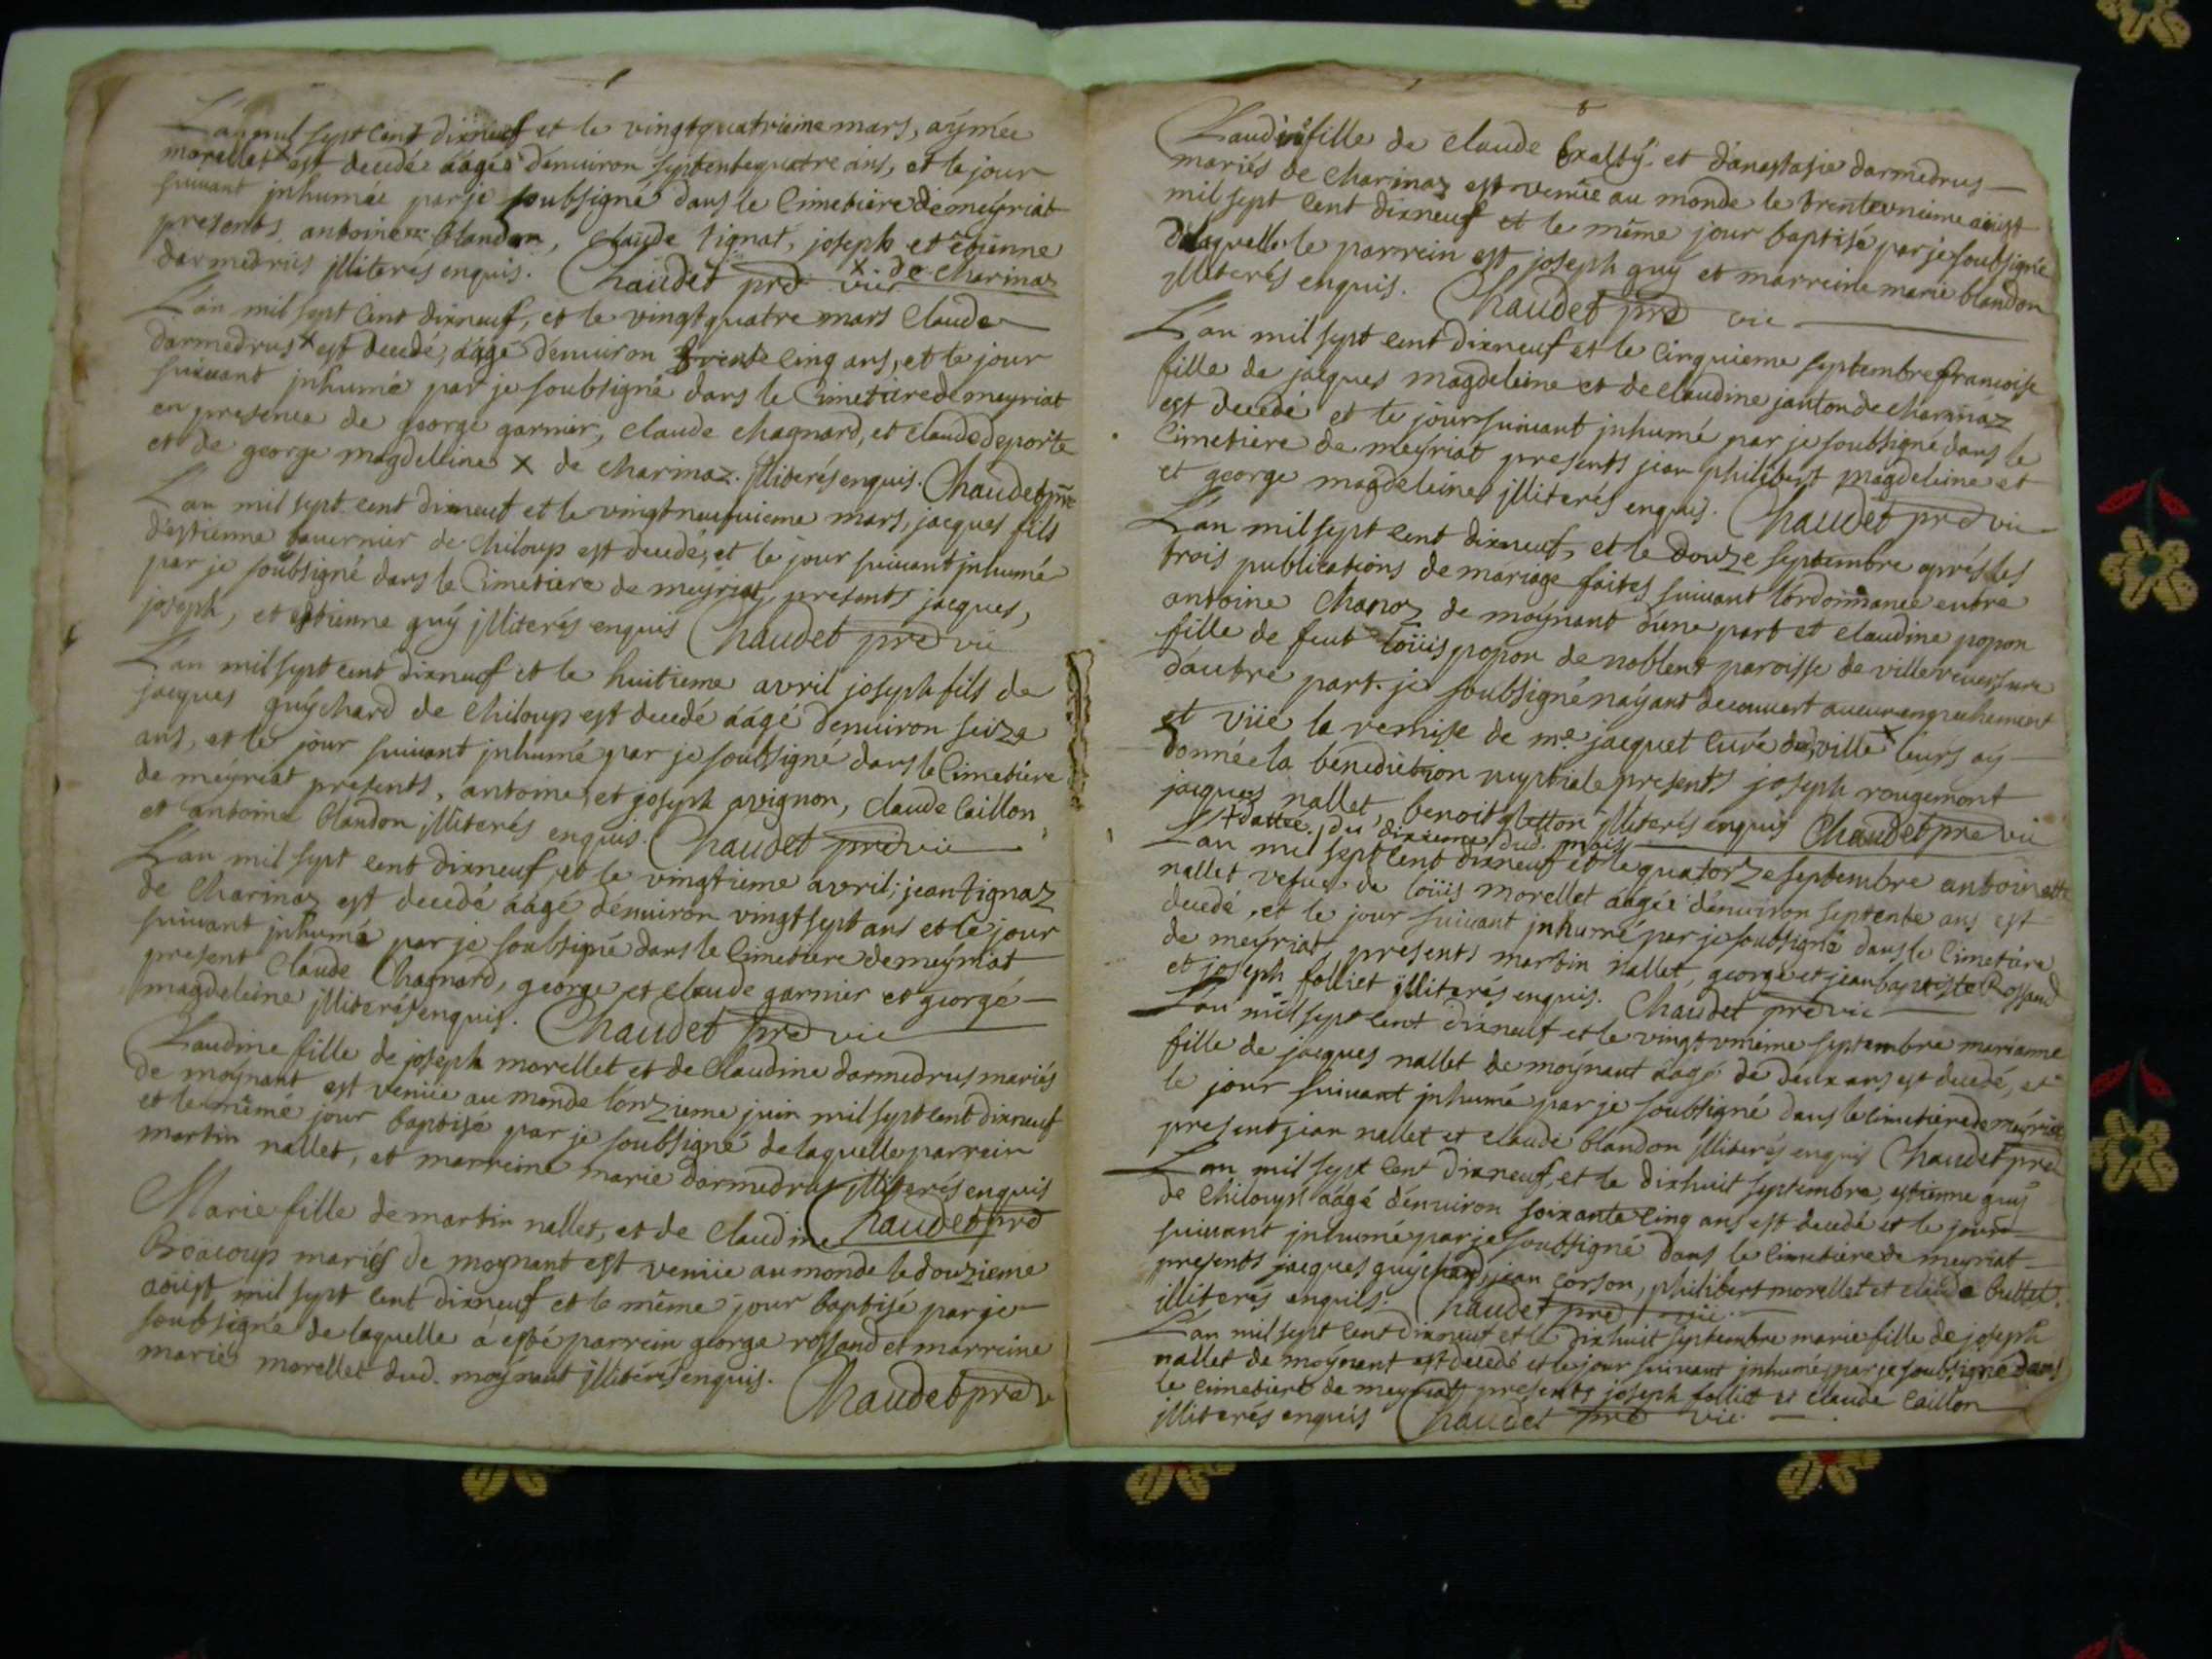 L'an mil sept cent dixneuf et le vingtquatrieme mars, aÿmée
morellet x est decedé áagée d'enuiron septentequatre ans, et le jour
suiuant jnhumée par je soubsigné dans le Cimetiere de meÿriat
presents antoine blandon, claude tignat, joseph et etienne
x de Charinaz
darmedrus jlliterés enquis. Chaudet pre vic
L'an mil sept cent dixneuf, et le vingt quatre mars Claude
darmedrus x est decedé, áagé d'enuiron trente cinq ans, et le jour
suiuant jnhumé par je soubsigné dans le Cimetiere de meyriat
en presence de george garnier, claude chagnard, et claude deporte
et de george magdeleine x de charinaz. jlliterés enquis. Chaudet pre
L'an mil sept cent dixneuf et le vingtneufuieme mars, jacques fils
d'estienne tauernier de Chiloup est decedé, et le jour suiuant jnhumé
par je soubsigné dans le Cimetiere de meÿriat, presents jacques,
joseph, et estienne guÿ jlliterés enquis Chaudet pre vic
L'an mil sept cent dixneuf et le huitieme avril joseph fils de
jacques guÿchard de Chiloup est decedé áagé d'enuiron seize
ans, et le jour suiuant jnhumé par je soubsigné dans le Cimetiere
de meÿriat presents, antoine, et joseph avignon, Claude Caillon,
et antoine blandon jlliterés enquis. Chaudet pre vic
L'an mil sept cent dixneuf, et le vingtieme avril; jean tignaz
de Charinaz est decedé áagé d'enuiron vingtsept ans et le jour
suiuant jnhumé par je soubsigné dans le Cimetiere de meyriat
present Claude Chagnard, george et Claude garnier et george
magdeleine jlliterés enquis. Chaudet pre vic
Claudine fille de joseph morellet et de Claudine darmedrus mariés
de moÿnant est veniie au monde l'onzieme juin mil sept cent dixneuf
et le même jour baptisé par je soubsigné de laquelle parrein
martin nallet, et marreine marie darmedrus jlliterés enquis
Chaudet pre
Marie fille de martin nallet, et de Claudine
Beaucoup mariés de moynant est veniie au monde le douzieme
aoüst mil sept cent dixneuf et le même jour baptisé par je
soubsigné de laquelle á esté parrein george rossand et marreine
marie morellet dud. moÿnant jllitérés enquis.
Chaudet pre v
Claudine fille de Claude et d'anastasie darmedrus
mariés de Charinaz est venüe au monde le trentevnieme aoüst
mil sept cent dixneuf et le même jour baptisé par je soubsigné
delaquelle le parrein est joseph guÿ et marreine marie blandon
jlliterés enquis. Chaudet pre vic
L'an mil sept cent dixneuf et le cinquieme septembre francoise
fille de jacques magdeleine et de claudine janton de charinaz
est decedé et le jour suiuant jnhumé par je soubsigné dans le
Cimetiere de meÿriat presents jean philibert magdeleine et
et george magdeleine jlliterés enquis. Chaudet pre vic
L'an mil sept cent dixneuf, et le douze septembre aprés les
trois publications de mariage faites suiuant l'ordonnance entre
antoine Chanoz de moÿnant d'une part et claudine popon
fille de feut loüis popon de noblent paroisse de villereuersure
d'autre part. je soubsigné n'aÿant decouuert aucun enpechement
et viie la remise de me jacquet Curé dud. ville x leurs aÿ
donnée la benediction nuptiale presents joseph rougemont
jacques nallet, benoit jlliterés enquis Chaudet pre vic
x dattée du dixieme dud. mois
L'an mil sept cent dixneuf et le quatorze septembre antoinette
nallet vefue de loüis morellet áagée d'enuiron septente ans est
decedé, et le jour suiuant jnhumé par je soubsigné dans le Cimetiere
de meÿriat presents martin nallet, george et jeanbaptiste Rossand
et joseph folliet jlliterés enquis. Chaudet pre vic
L'an mil sept cent dixneuf et le vingt vnieme septembre marianne
fille de jacques nallet de moÿnant áagé de deux ans est decedé, et
le jour suiuant jnhumé par je soubsigné dans le cimetiere de meÿriat
present jean nallet et claude blandon jlliterés enquis Chaudet pre
L'an mil sept cent dixneuf, et le dixhuit septembre, estienne guÿ
de Chiloup áagé d'enuiron soixante cinq ans est decedé et le jour
suiuant jnhumé par je soubsigné dans le cimetiere de meyriat
presents jacques guÿchard, jean corson, philibert morellet et claude buttet.
jlliterés enquis. Chaudet pre vic
L'an mil sept cent dixneuf et le dixhuit septembre marie fille de joseph
nallet de moÿnant est decedé et le jour suiuant jnhumé par je soubsigné dans
le cimetiere de meyriat presents joseph folliet et claude Caillon
jlliterés enquis Chaudet pre vic